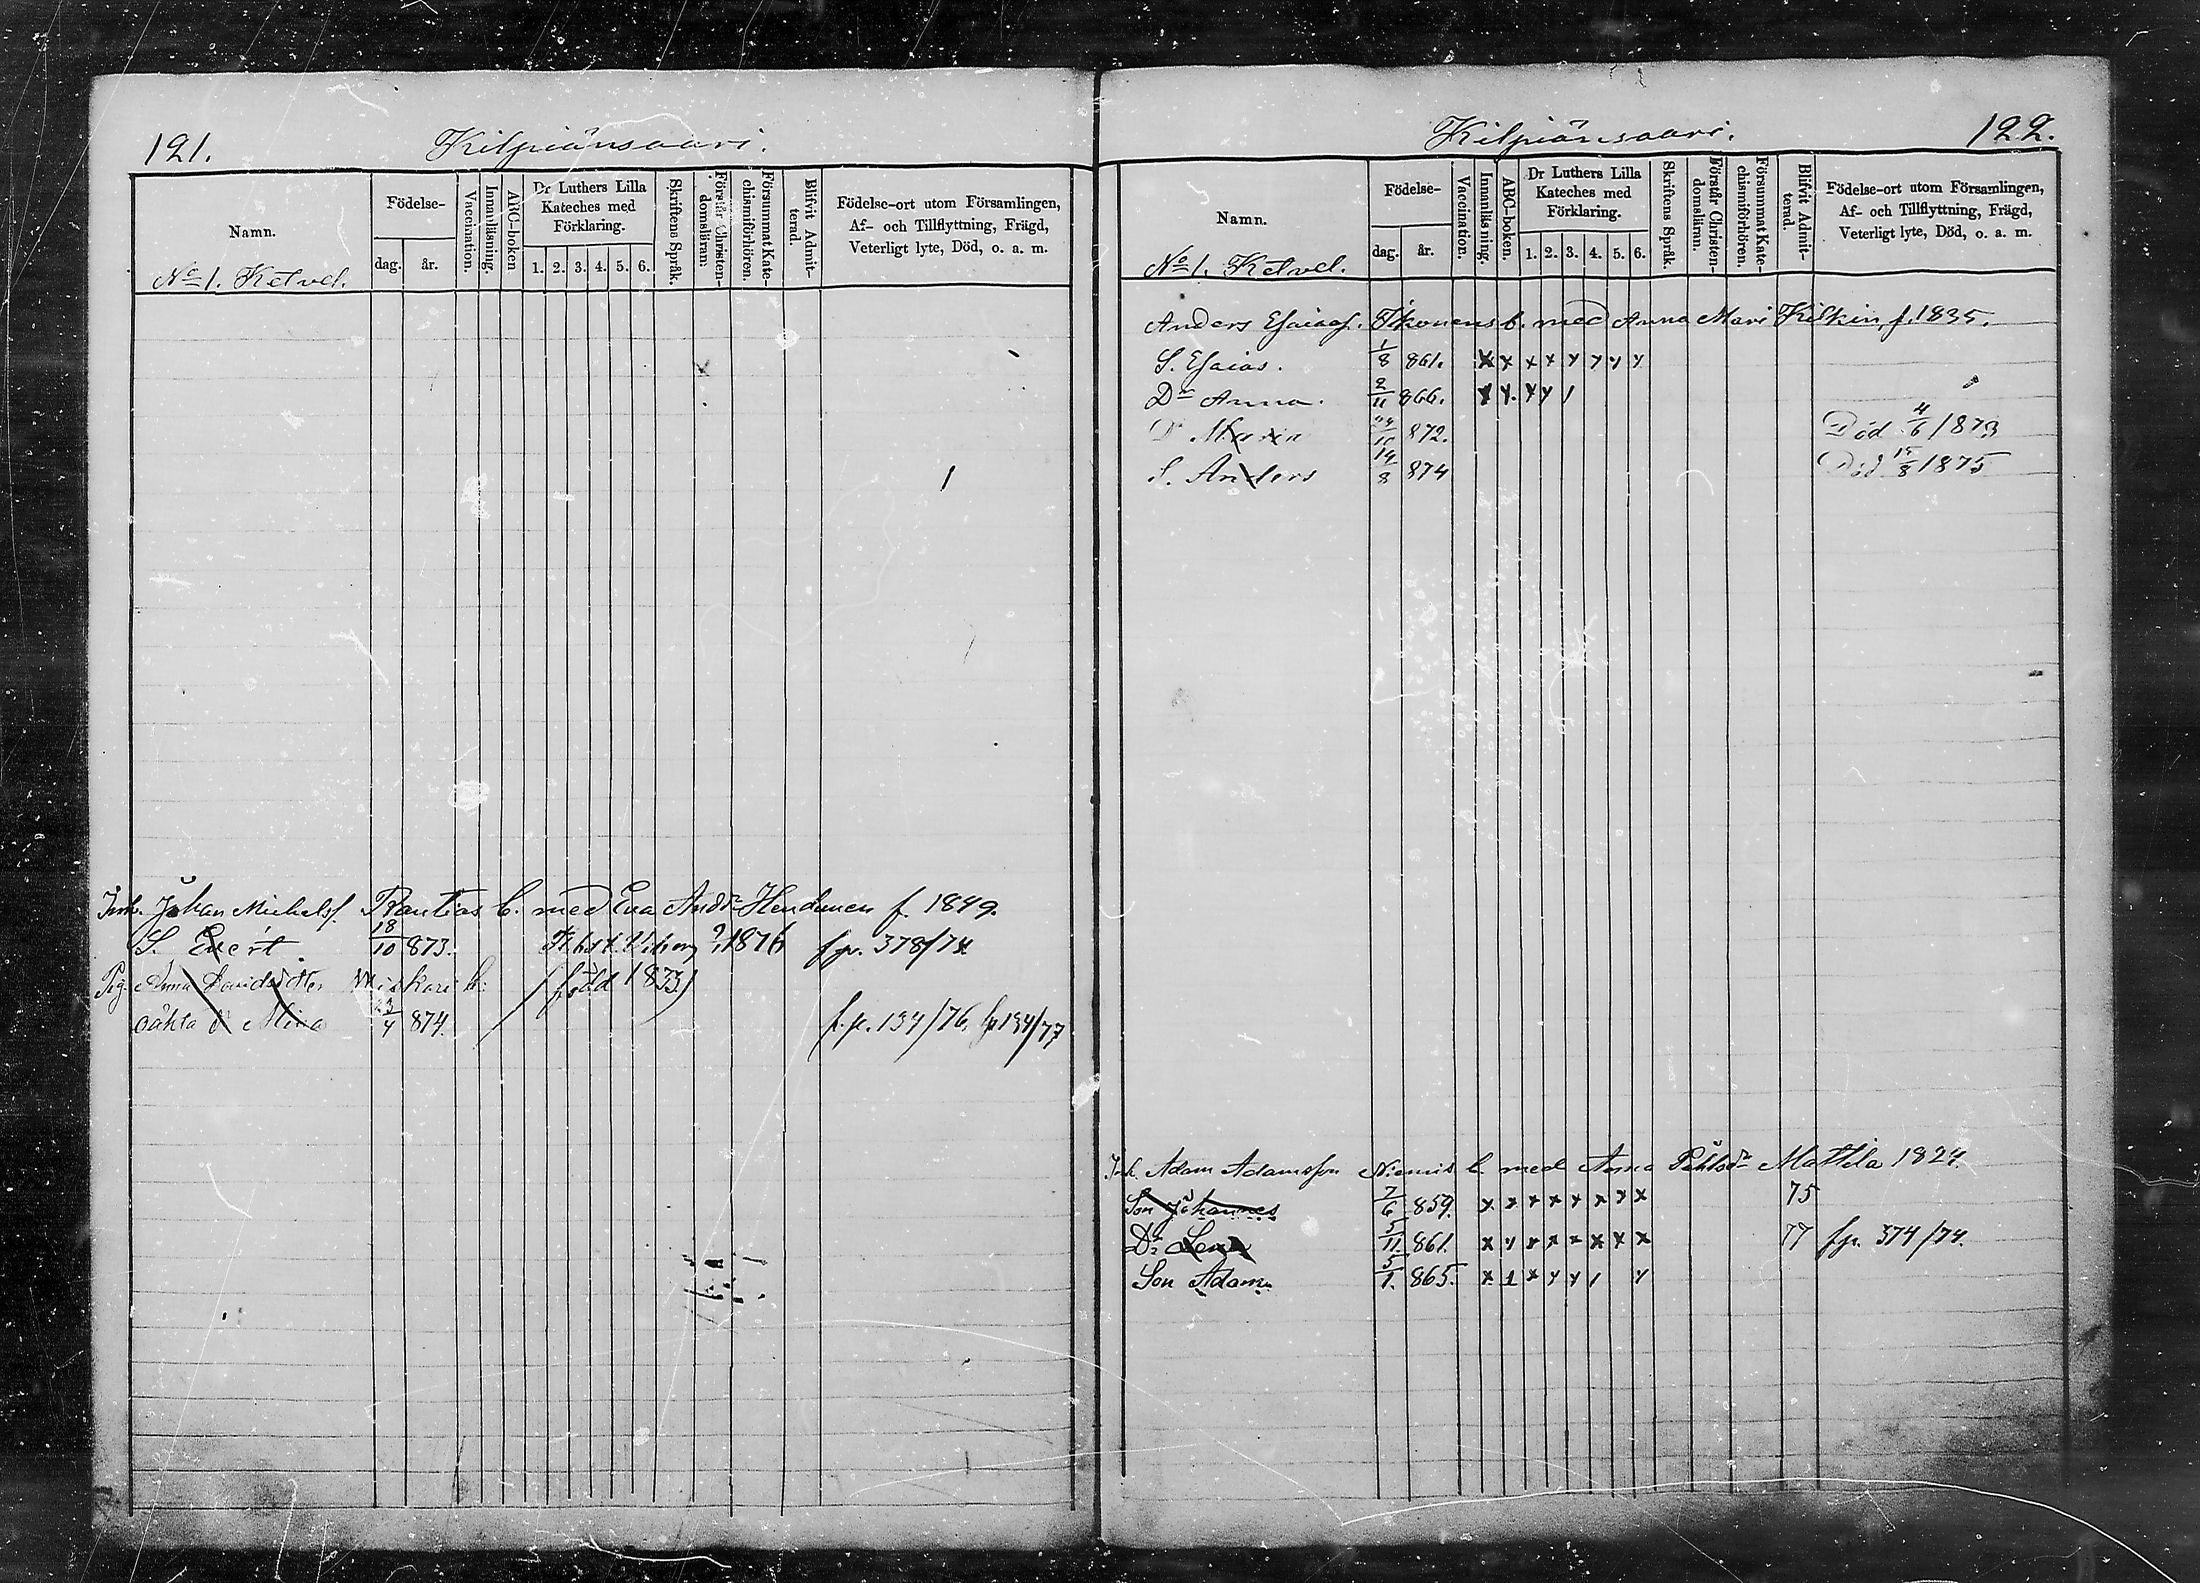 121.
Kilpiänsaari.
Namn.
Födelse-
dag.
år.
Vaccination.
Innanläsning.
ABC-boken
Dr Luthers Lilla
Kateches med
Förklaring.
1. 2. 3. 4. 5. 6.
Skriftens Språk.
Förstår Christen-
domsläran.
Försummat Kate-
chismiförhören.
Blifvit Admit-
terad.
Födelse-ort utom Församlingen,
Af- och Tillflyttning, Frägd,
Veterligt lyte, Död, o. a. m.
No 1. Ketvel.
Inh. Johan Michelsf. Rantias b. med Eva Andr. f. 1849.
S. Evert. 18/10 873. 1876 fp. 378/74
Pig. Anna Davidsdotter b: (född 1833)
oäkta dr Mina 23/4 874. f.p. 134/76, fp 134/77
Kilpiänsaari.
122.
Namn.
Födelse-
dag.
år.
Vaccination.
Innanläsning.
ABC-boken.
Dr Luthers Lilla
Kateches med
Förklaring.
1. 2. 3. 4. 5. 6.
Skriftens Språk.
Förstår Christen-
domsläran.
Försummat Kate-
chismiförhören.
Blifvit Admit-
terad.
Födelse-ort utom Församlingen,
Af- och Tillflyttning, Frägd,
Veterligt lyte, Död, o. a. m.
No 1. Ketvel.
Anders Esaiasf. Ikonens b. med Anna Mari Kilkin, f. 1835.
S. Esaias. 1/8 861. x x x x x x x x
Dr Anna. 2/11 866. x x x x /
Dr Maria 872. Död 4/6 1873
S. Anders 14/8 874 Död 15/8 1875
Inh. Adam Adamsson Niemis b. med Anna Pehlsdr Mattila 1824.
Son Johannes 7/6 859. x x x x x x x x 75
Dr Lena 5/11 861. x x x x x x x x 77 fp. 374/74.
Son Adam 5/1. 865. x 1 x x x / x